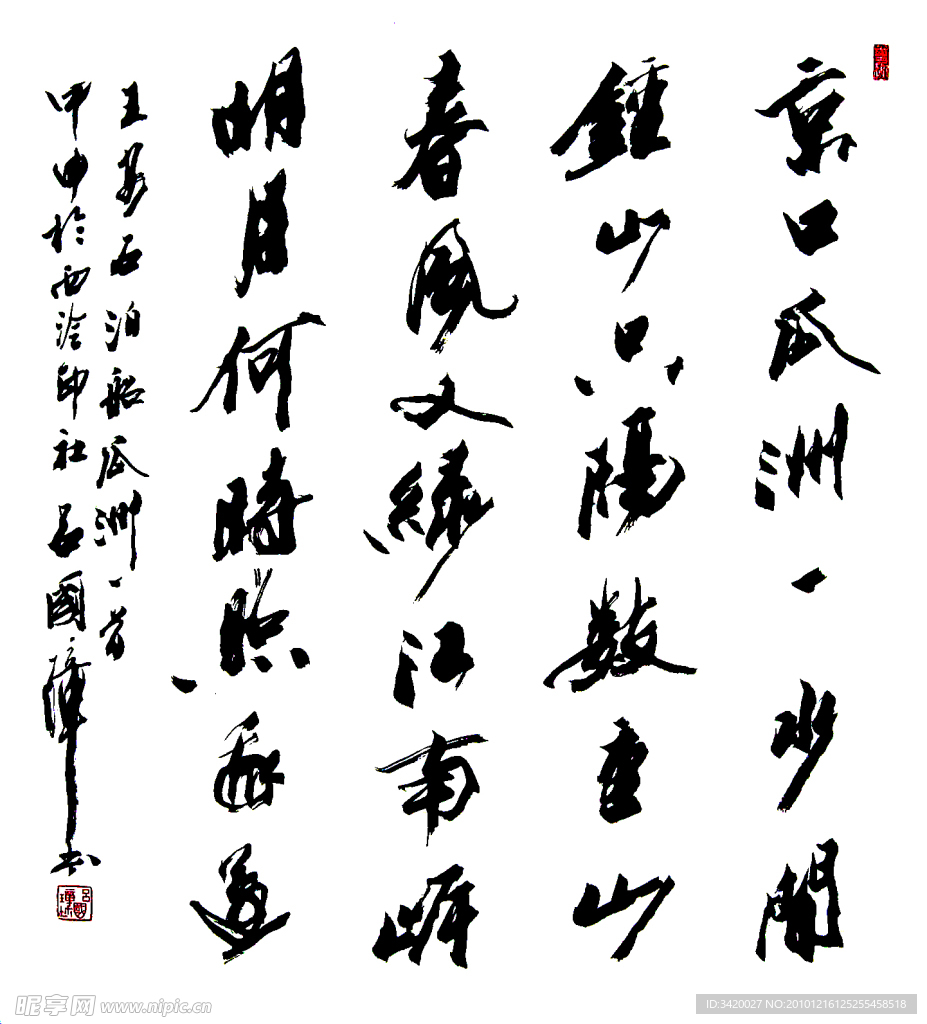 京口瓜洲一水間
鍾山只隔數重山
春風又綠江南岸
明月何時照我還
王安石泊船瓜洲一首
甲申於西泠印社呂國璋書
昵享网 www.nipic.cn
ID:3420027 NO:20101216125255458518